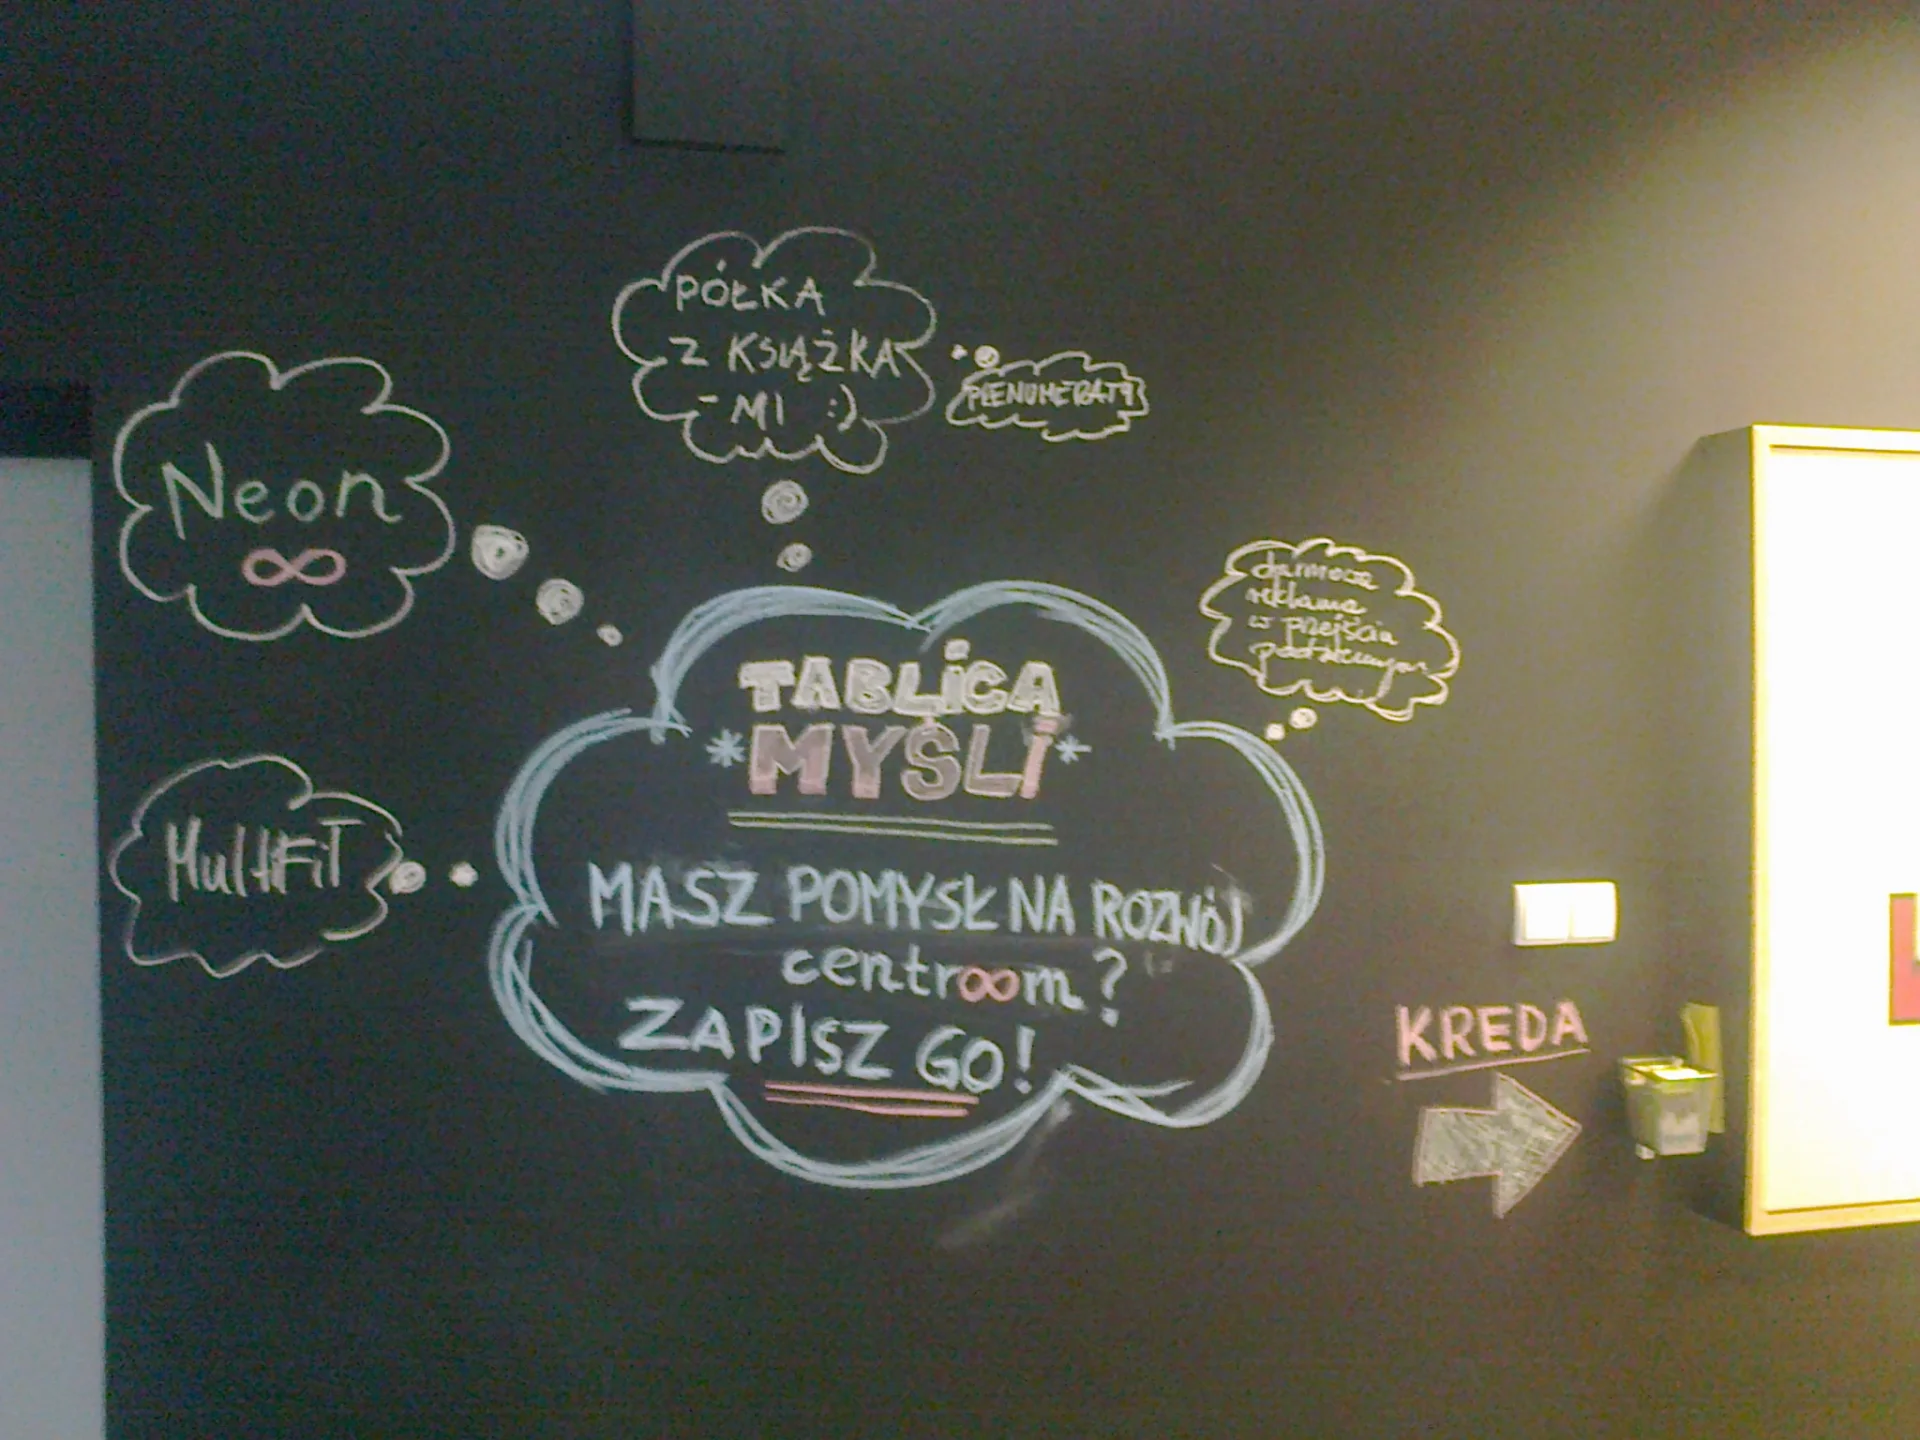 PÓŁKA
Z KSIĄŻKA
- MI :)
PRENUMERATY
Neon
∞
darmowa
reklama
w przejściu
podziemnym
TABLICA
*MYŚLI*
MultFiT
MASZ POMYSŁ NA ROZWÓJ
centroom?
ZAPISZ GO!
KREDA